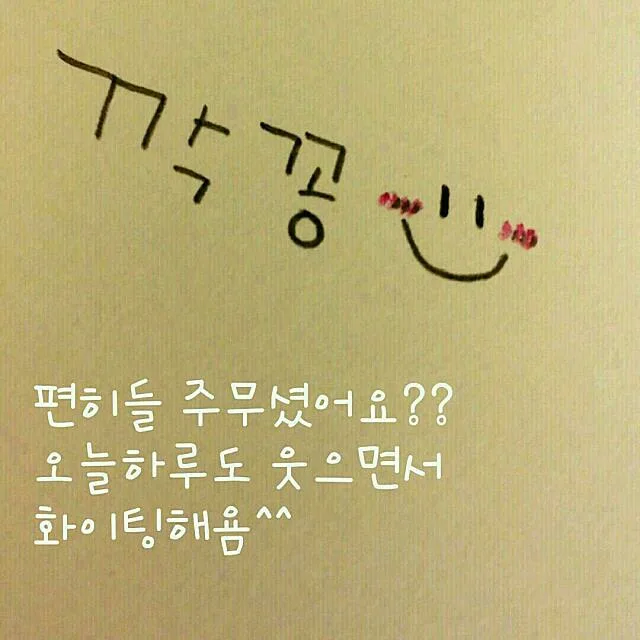 깍꽁
편히들 주무셨어요??
오늘하루도 웃으면서
화이팅해욤^^